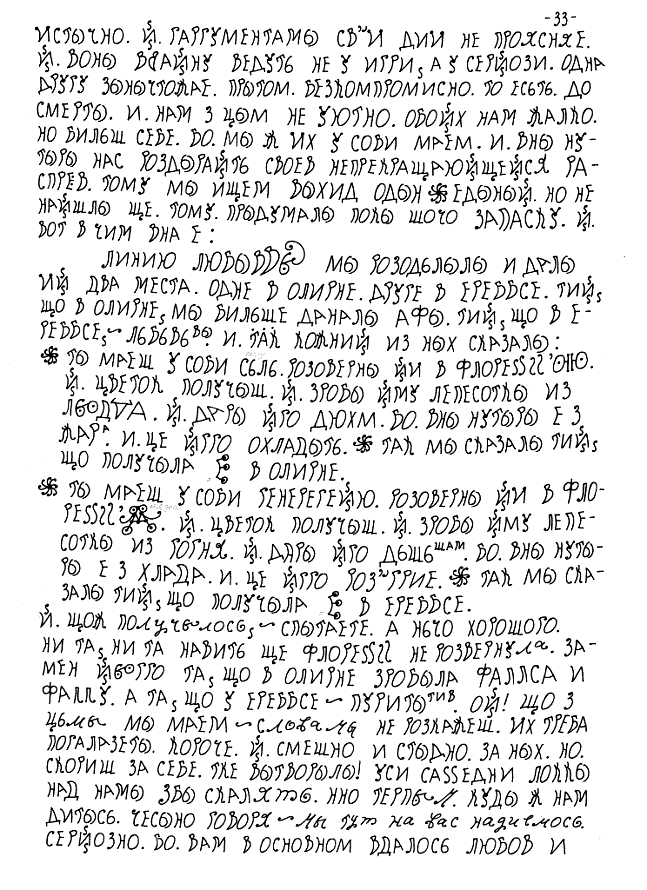 -33-
ИСТЫЧНО. Й. ГАРГУМЕНТАМЫ СВИ ДИИ НЕ ПРОЯСНЯЕ.
Й. ВОНЫ ВЗАЙНУ ВЕДУТЬ НЕ У ИГРИ, А У СЕРЙОЗИ. ОДНА
ДРУГУ ЗЫНЫЧТОЖАЕ. ПРЫТОМ. БЕЗКОМПРОМИСНО. ТО ЕСЬТЬ. ДО
СМЕРТЫ. И. НАМ З ЦЫМ НЕ УЮТНО. ОБОЙИХ НАМ ЖАЛКО.
НО БИЛЬШ СЕБЕ. БО. МЫ Ж ИХ У СОБИ МАЕМ. И. ВНЫ НУ-
ТЫРЫ НАС РОЗДЫРАЙТЬ СВОЕВ НЕПРЕКРАЩАЮЙЩЕЙСЯ РА-
СПРЕВ. ТОМУ МЫ ИЩЕМ ВЫХИД ОДЫН ЕДЫНЫЙ. НО НЕ
НАЙШЛЫ ЩЕ. ТОМУ. ПРЫДУМАЛЫ ПОКЫ ШОЧО ЗАПАСКУ. Й.
ВОТ В ЧИМ ВНА Е:
ЛИНИЮ МЫ РОЗОДЬЛЫЛЫ И ДАЛЫ
ИЙ ДВА МЕСТА. ОДНЕ В ОЛИРНЕ. ДРУГЕ В ЕРЕВВСЕ. ТИЙ,
ЩО В ОЛИРНЕ, МЫ БИЛЬШЕ ДАНАЛЫ АФЫ. ТИЙ, ЩО В Е-
РЕВВСЕ, И. ТАК КОЖНИЙ ИЗ НЫХ СКАЗАЛЫ:
ТЫ МАЕШ У СОБИ СЫЛЬ. РОЗОВЕРНЫ ЙИ В
Й. ЦВЕТОК ПОЛУЧЫШ. Й. ЗРОБЫ ЙМУ ЛЕПЕСОТКЫ ИЗ
Й. ДАРЫ ЙГО ДЮХМ. БО. ВНЫ НУТЫРЫ Е З
ЖАРА. И. ЦЕ ЙГГО ОХЛАДЫТЬ. ТАК МЫ СКАЗАЛЫ ТИЙ,
ЩО ПОЛУЧЫЛА В ОЛИРНЕ.
ТЫ МАЕШ У СОБИ ГЕНЕРГЕЙЮ. РОЗОВЕРНЫ ЙИ В ФЛО-
Й. ЦВЕТОК ПОЛУЧЫШ. Й. ЗРОБЫ ЙМУ ЛЕПЕ-
СОТКЫ ИЗ ГОГНЯ. Й. ДАРЫ ЙГО БО. ВНЫ НУТЫ-
РЫ Е З ХЛАДА. И. ЦЕ ЙГГО ТАК МЫ СКА-
ЗАЛЫ ТИЙ, ЩО ПОЛУЧЫЛА В ЕРЕВВСЕ.
Й. ЩОЖ ПОЛУЧЫЛОСЬ, СПЫТАЕТЕ. А НЫЧО ХОРОШОГО.
НИ ТА, НИ ТА НАВИТЬ ЩЕ НЕ РОЗВЕРНУЛА. ЗА-
МЕН ТА, ЩО В ОЛИРНЕ ЗРОБЫЛА ФАЛЛСА И
ФАЛЛУ. А ТА, ЩО У ЕРЕВВСЕ ОЙ! ЩО З
ЦЫМЫ МЫ МАЕМ СЛОВАМЫ НЕ РОЗКАЖЕШ. ИХ ТРЕБА
ПОГАЛАЗЕТЫ. КОРОЧЕ. Й. СМЕШНО И СТЫДНО. ЗА НЫХ. НО.
СКОРИШ ЗА СЕБЕ. ТКЕ ВЫТВОРЫЛЫ! УСИ САSSЕДНИ
НАД НАМЫ СКАЛЯТЬ. КУДЫ Ж НАМ
ДИТЫСЬ. ЧЕСЬНО ГОВОРЯ МЫ ТУТ НА ВАС НАДИЕМОСЬ.
СЕРЙОЗНО. БО. ВАМ В ОСНОВНОМ ВДАЛОСЬ ЛЮБОВ И